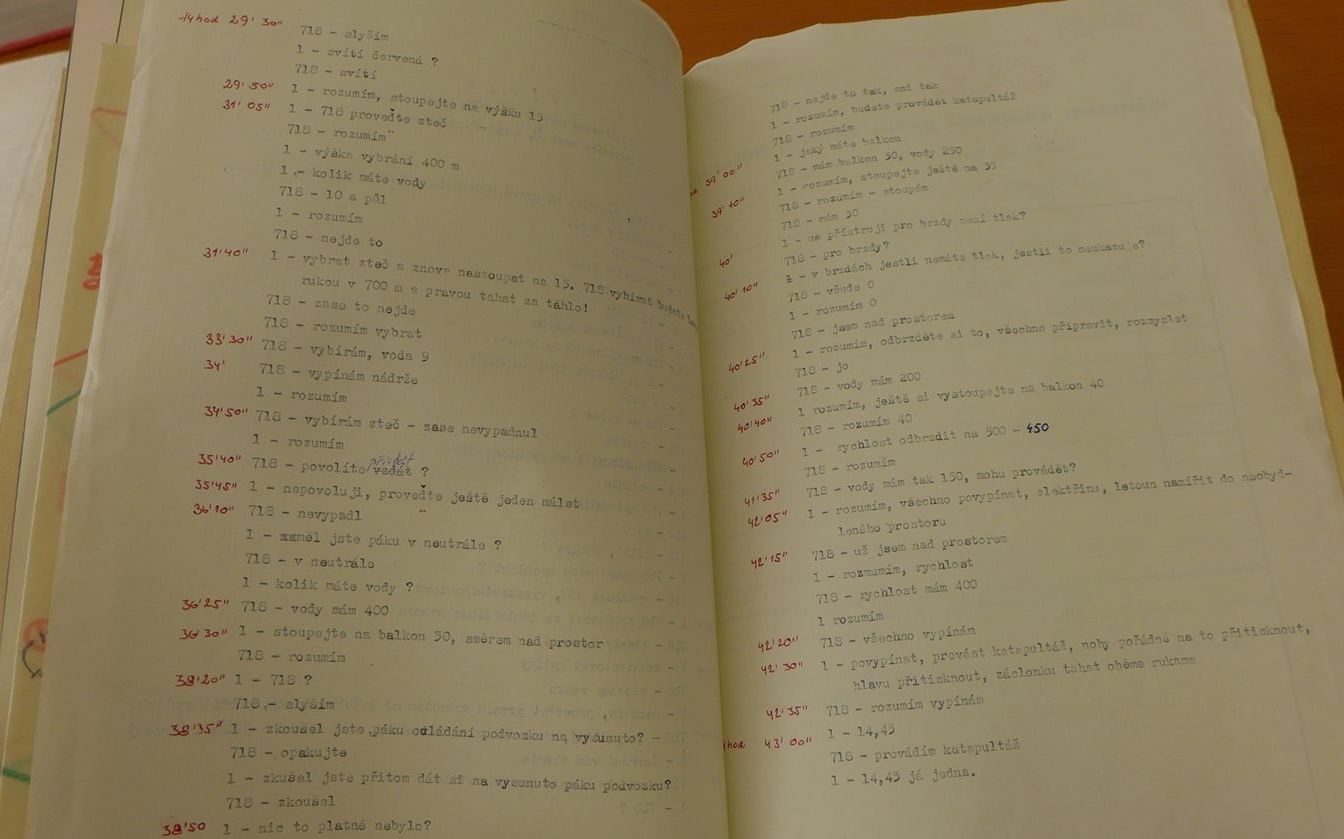 14 hod 29' 30"
718 - slyším
1 - svítí červená ?
718 - svítí
29' 50" 1 - rozumím, stoupejte na výšku 15
31' 05" 1 - 718 proveďte zteč
718 - rozumím
1 - výška vybrání 400 m
1 - kolik máte vody
718 - 10 a půl
1 - rozumím
718 - nejde to
31'40" 1 - vybrat zteč a znova nastoupat na 15. 718 vybírat budete
rukou v 700 m a pravou tahat za táhlo!
718 - zase to nejde
718 - rozumím vybrat
33'30" 718 - vybírám, voda 9
34' 718 - vypínám nádrže
1 - rozumím
34'50" 718 - vybírám zteč - zase nevypadnul
1 - rozumím
35'40" 718 - povolíte vzdát ?
35'45" 1 - nepovoluji, proveďte ještě jeden nálet
36'10" 718 - nevypadl
1 - xxměl jste páku v neutrále ?
718 - v neutrále
1 - kolik máte vody ?
36'25" 718 - vody mám 400
36'30" 1 - stoupejte na balkon 50, směrem nad prostor
718 - rozumím
38'20" 1 - 718 ?
718 - slyším
38'35" 1 - zkoušel jste páku ovládání podvozku na vysunuto?
718 - opakujte
1 - zkušel jste přitom dát si na vysunuto páku podvozku?
718 - zkoušel
38'50 1 - nic to platné nebylo?
718 - nejde to tak, ani tak
1 - rozumím, budete provádět katapultáž
718 - rozumím
1 - jaký máte balkon
39'00" 718 - mám balkon 30, vody 250
1 - rozumím, stoupejte ještě na 35
39'10" 718 - rozumím - stoupám
718 - mám 30
1 - na přístroji pro brzdy není tlak?
40' 718 - pro brzdy?
1 - v brzdách jestli nemáte tlak, jestli to neukazuje?
40'10" 718 - všude 0
1 - rozumím 0
718 - jsem nad prostorem
1 - rozumím, odbrzděte si to, všechno připravit, rozmyslet
40'25" 718 - jo
718 - vody mám 200
40'35" 1 rozumím, ještě si vystoupejte na balkon 40
40'40" 718 - rozumím 40
1 - rychlost odbrzdit na 500 - 450
40'50" 718 - rozumím
41'35" 718 - vody mám tak 150, mohu provádět?
42'05" 1 - rozumím, všechno povypínat, elektřinu, letoun namířit do neobyd-
leného prostoru
42'15" 718 - už jsem nad prostorem
1 - rozmumím, rychlost
718 - rychlost mám 400
1 rozumím
42'20" 718 - všechno vypínám
42'30" 1 - povypínat, provést katapultáž, nohy pořádně na to přitisknout,
hlavu přitisknout, záclonku tahat oběma rukama
42'35" 718 - rozumím vypínám
hod 43'00" 1 - 14,43
718 - provádím katapultáž
1 - 14,43 já jedna.